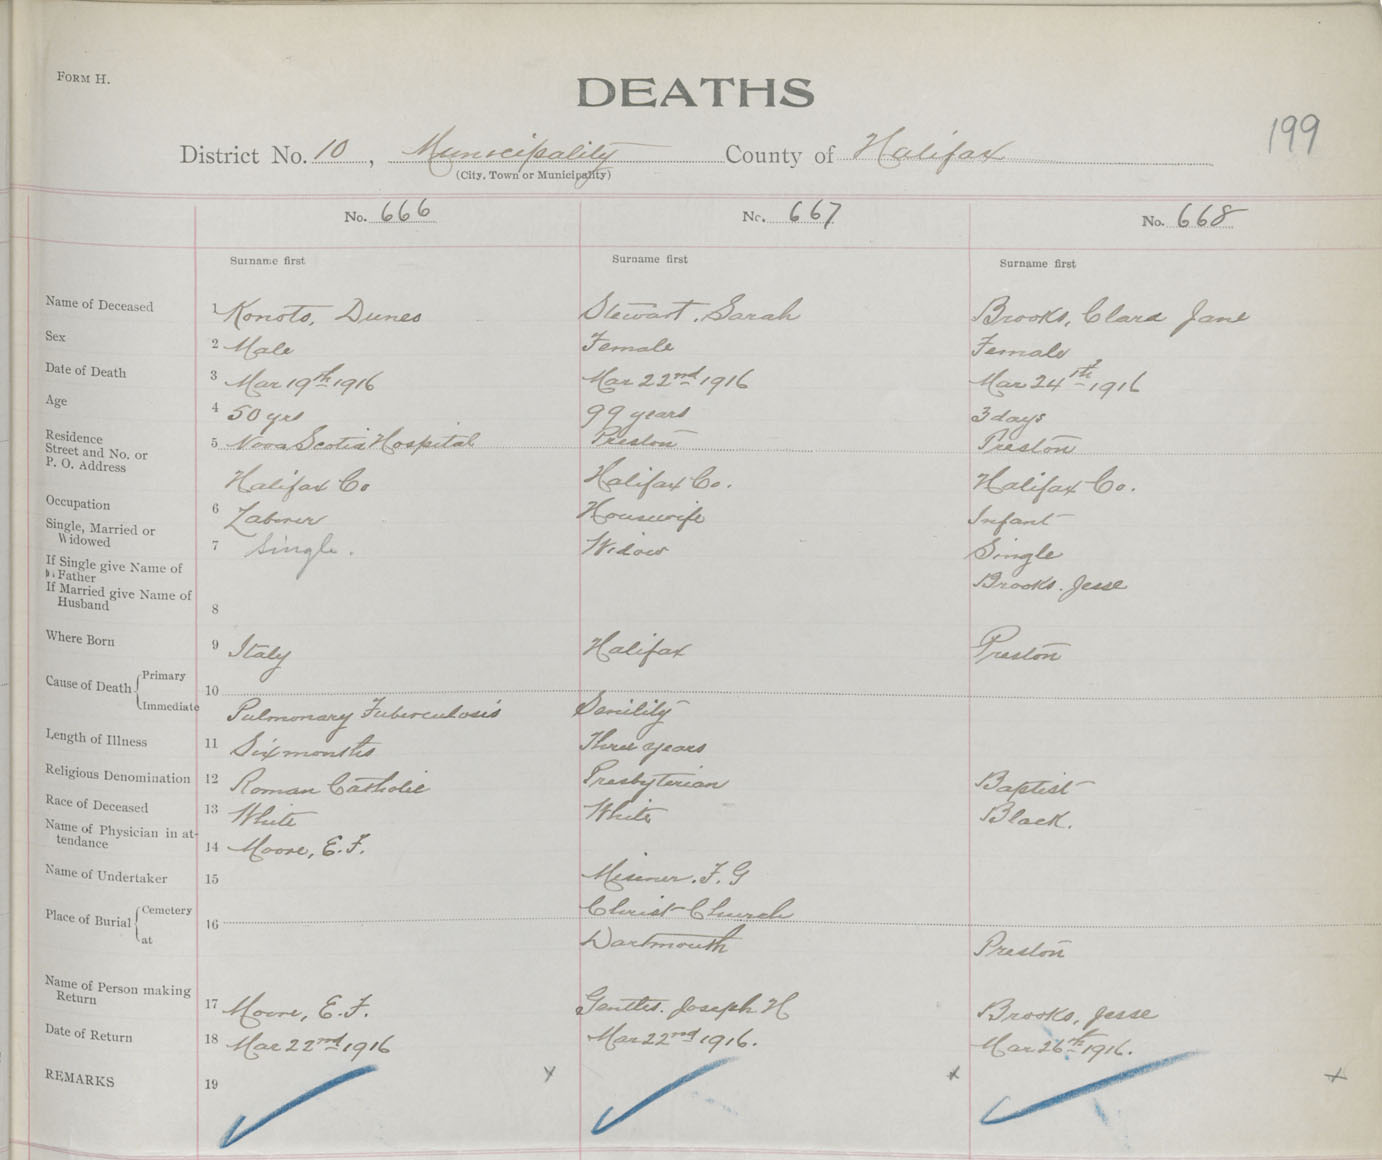 FORM H.
DEATHS
199
District No. 10, Municipality County of Halifax
(City, Town or Municipality)
No. 666 No. 667 No. 668
Surname first Surname first Surname first
Name of Deceased 1 Konoto, Dunes Stewart, Sarah Brooks, Clara Jane
Sex 2 Male Female Female
Date of Death 3 Mar 19th 1916 Mar 22nd 1916 Mar 24th 1916
Age 4 50 yrs 99 years 3 days
Residence
Street and No. or 5 Nova Scotia Hospital Preston Preston
P. O. Address
Halifax Co Halifax Co. Halifax Co.
Occupation 6 Laborer Housewife Infant
Single, Married or
Widowed 7 Single. Widow Single
If Single give Name of
Father Brooks, Jesse
If Married give Name of
Husband 8
Where Born 9 Italy Halifax Preston
Cause of Death Primary 10
Immediate Pulmonary Tuberculosis Senility
Length of Illness 11 Six months Three years
Religious Denomination 12 Roman Catholic Presbyterian Baptist
Race of Deceased 13 White White Black.
Name of Physician in at-
tendance 14 Moore, E. F.
Name of Undertaker 15 Misener, F. G
Place of Burial Cemetery 16 Christ Church
at Dartmouth Preston
Name of Person making
Return 17 Moore, E. F. Gentles, Joseph H Brooks, Jesse
Date of Return 18 Mar 22nd 1916 Mar 22nd 1916. Mar 26th 1916.
REMARKS 19 x x x